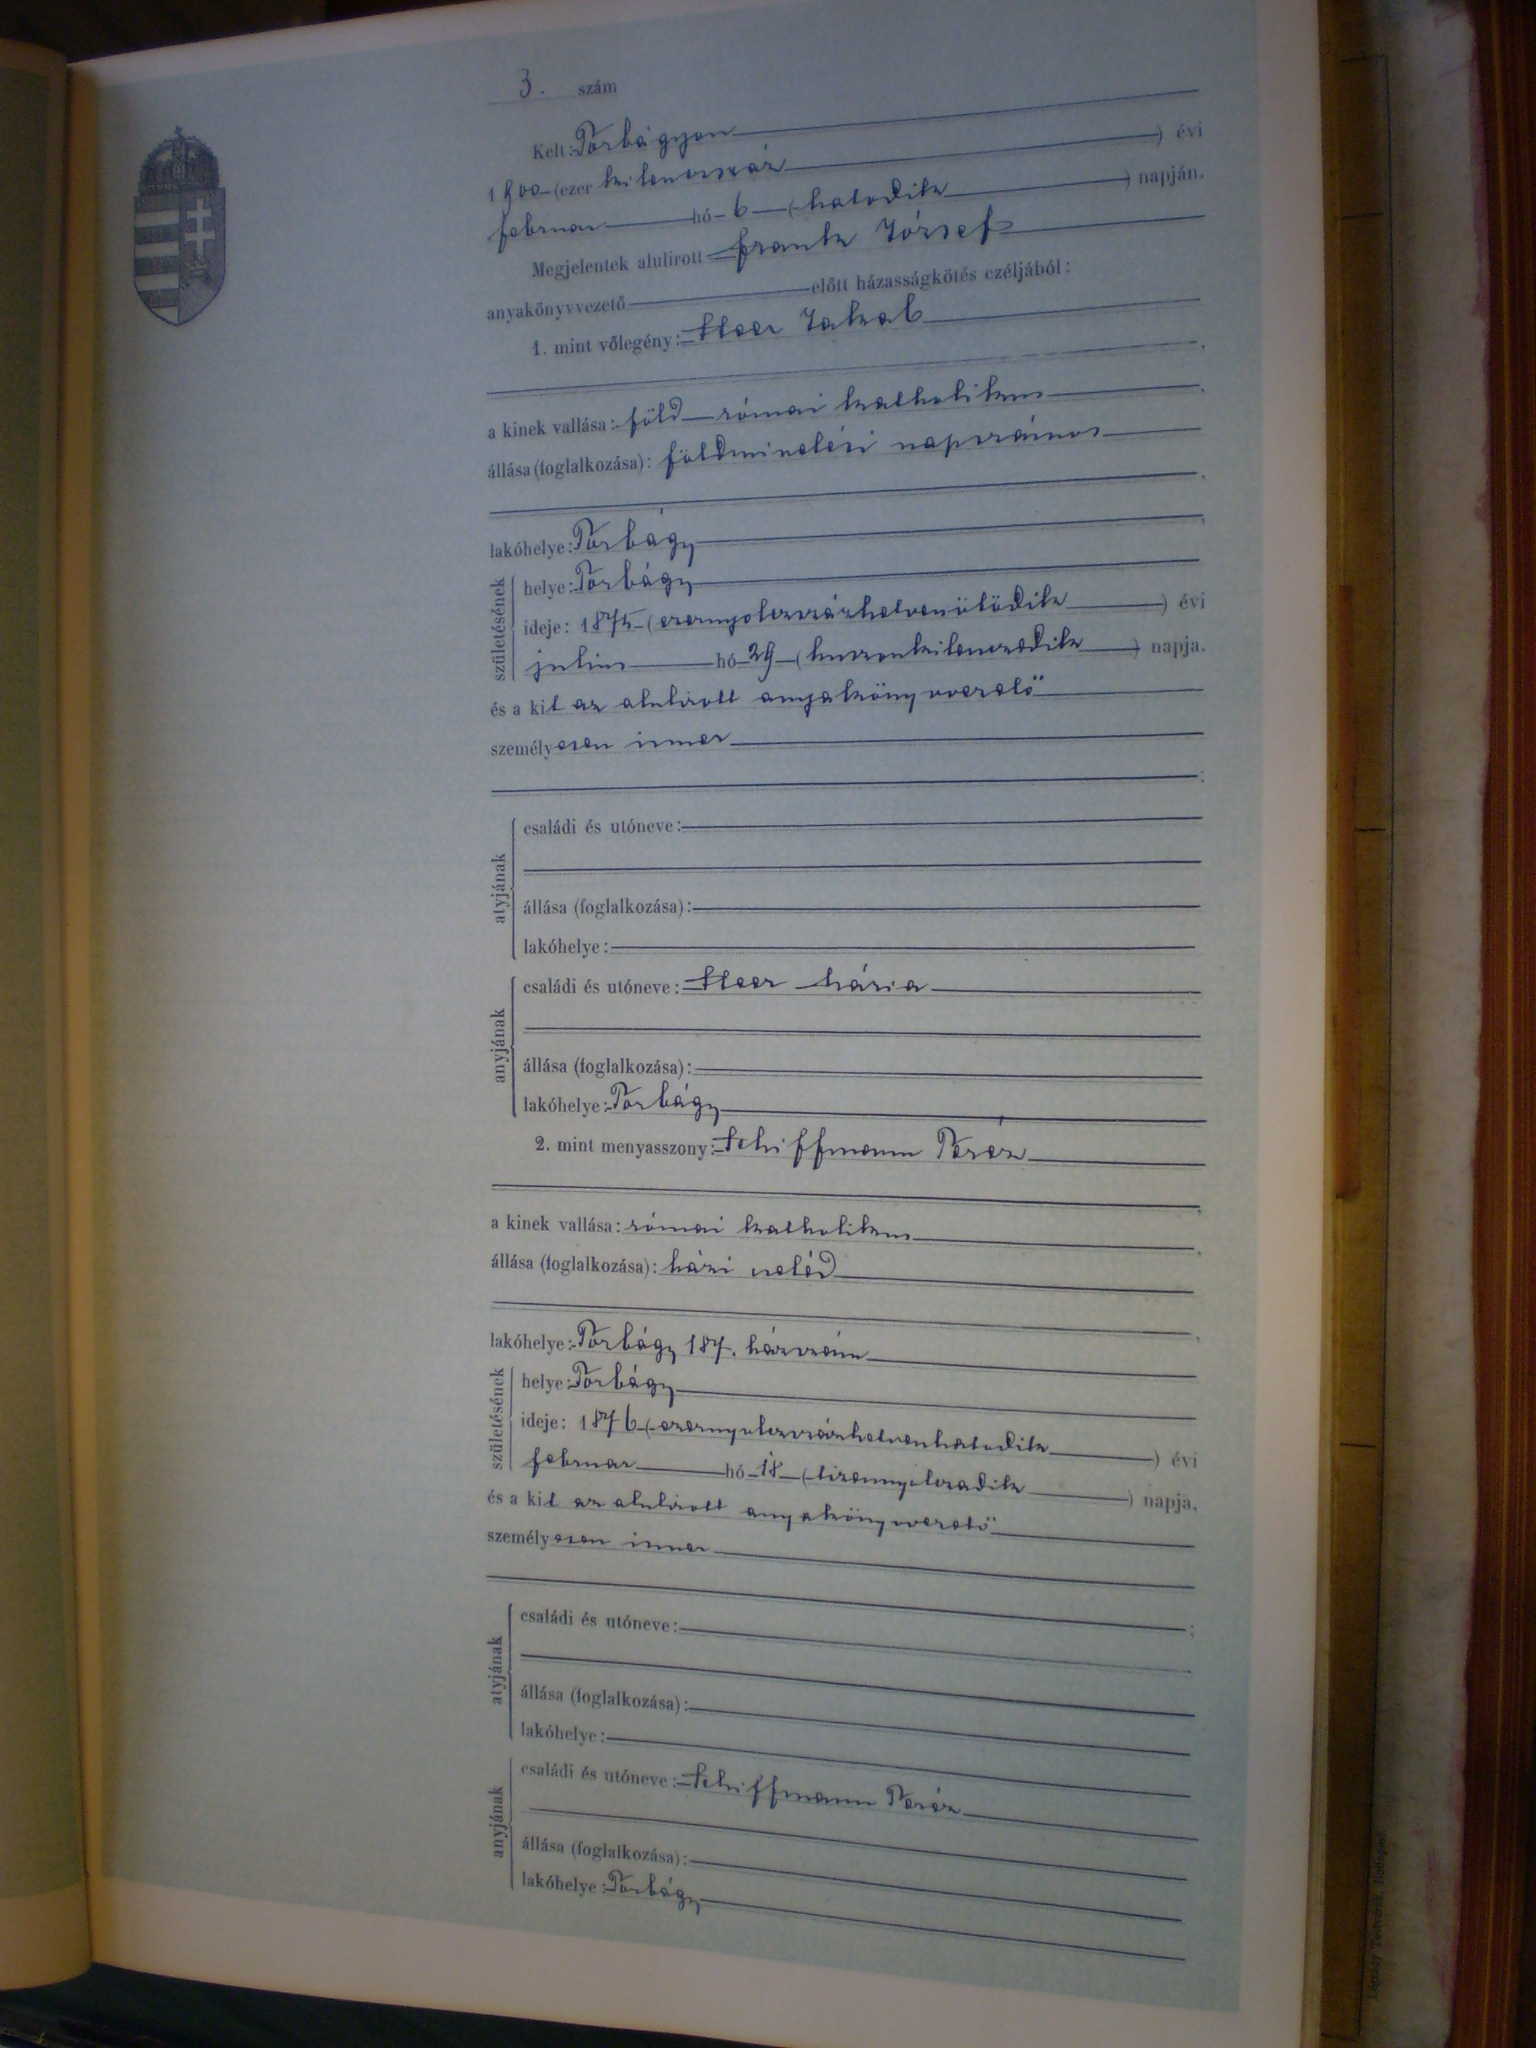 3. szám
Kelt: Torbágyon
1900 (ezer kilenczszáz) évi
februar hó 6 (hatodik) napján.
Megjelentek alulirott Frank József
anyakönyvvezető előtt házasságkötés czéljából:
1. mint vőlegény: Steer Jakab
a kinek vallása: föld római katholikus
állása (foglalkozása): földmivelési napszámos
lakóhelye: Torbágy
születésének
helye: Torbágy
ideje: 1875 (ezernyolczszázhetvenötödik) évi
julius hó 29 (huszonkilenczedik) napja.
és a kit az alulirott anyakönyvvezető
személyesen ismer
atyjának
családi és utóneve:
állása (foglalkozása):
lakóhelye:
anyjának
családi és utóneve: Steer Mária
állása (foglalkozása):
lakóhelye: Torbágy
2. mint menyasszony: Schiffmann Teréz
a kinek vallása: római katholikus
állása (foglalkozása): házi cseléd
lakóhelye: Torbágy 187. házszám
születésének
helye: Torbágy
ideje: 1876 (ezernyolczszázhetvenhatodik) évi
februar hó 18 (tizennyolczadik) napja,
és a kit az alulirott anyakönyvvezető
személyesen ismer
atyjának
családi és utóneve:
állása (foglalkozása):
lakóhelye:
anyjának
családi és utóneve: Schiffmann Teréz
állása (foglalkozása):
lakóhelye: Torbágy